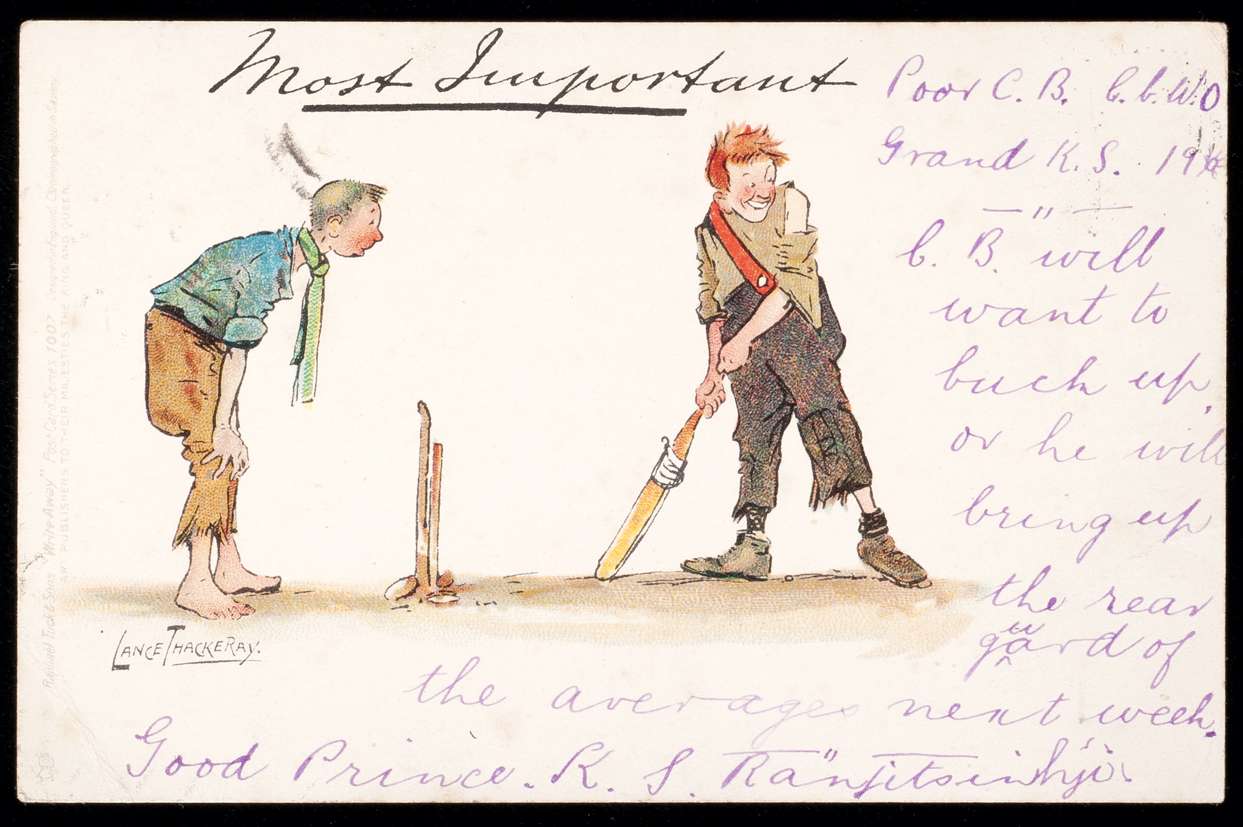 Most Important
Poor C. B. c. b. W. O
Grand K. S. 19
— " —
C. B. will
want to
buck up,
or he will
bring up
the rear
guard of
the averages next week.
Good Prince. K. S. Ränjitsinhji.
LANCE THACKERAY.
Raphael Tuck & Sons "Write Away" Post Card Series 1007
ART PUBLISHERS TO THEIR MAJESTIES THE KING AND QUEEN.